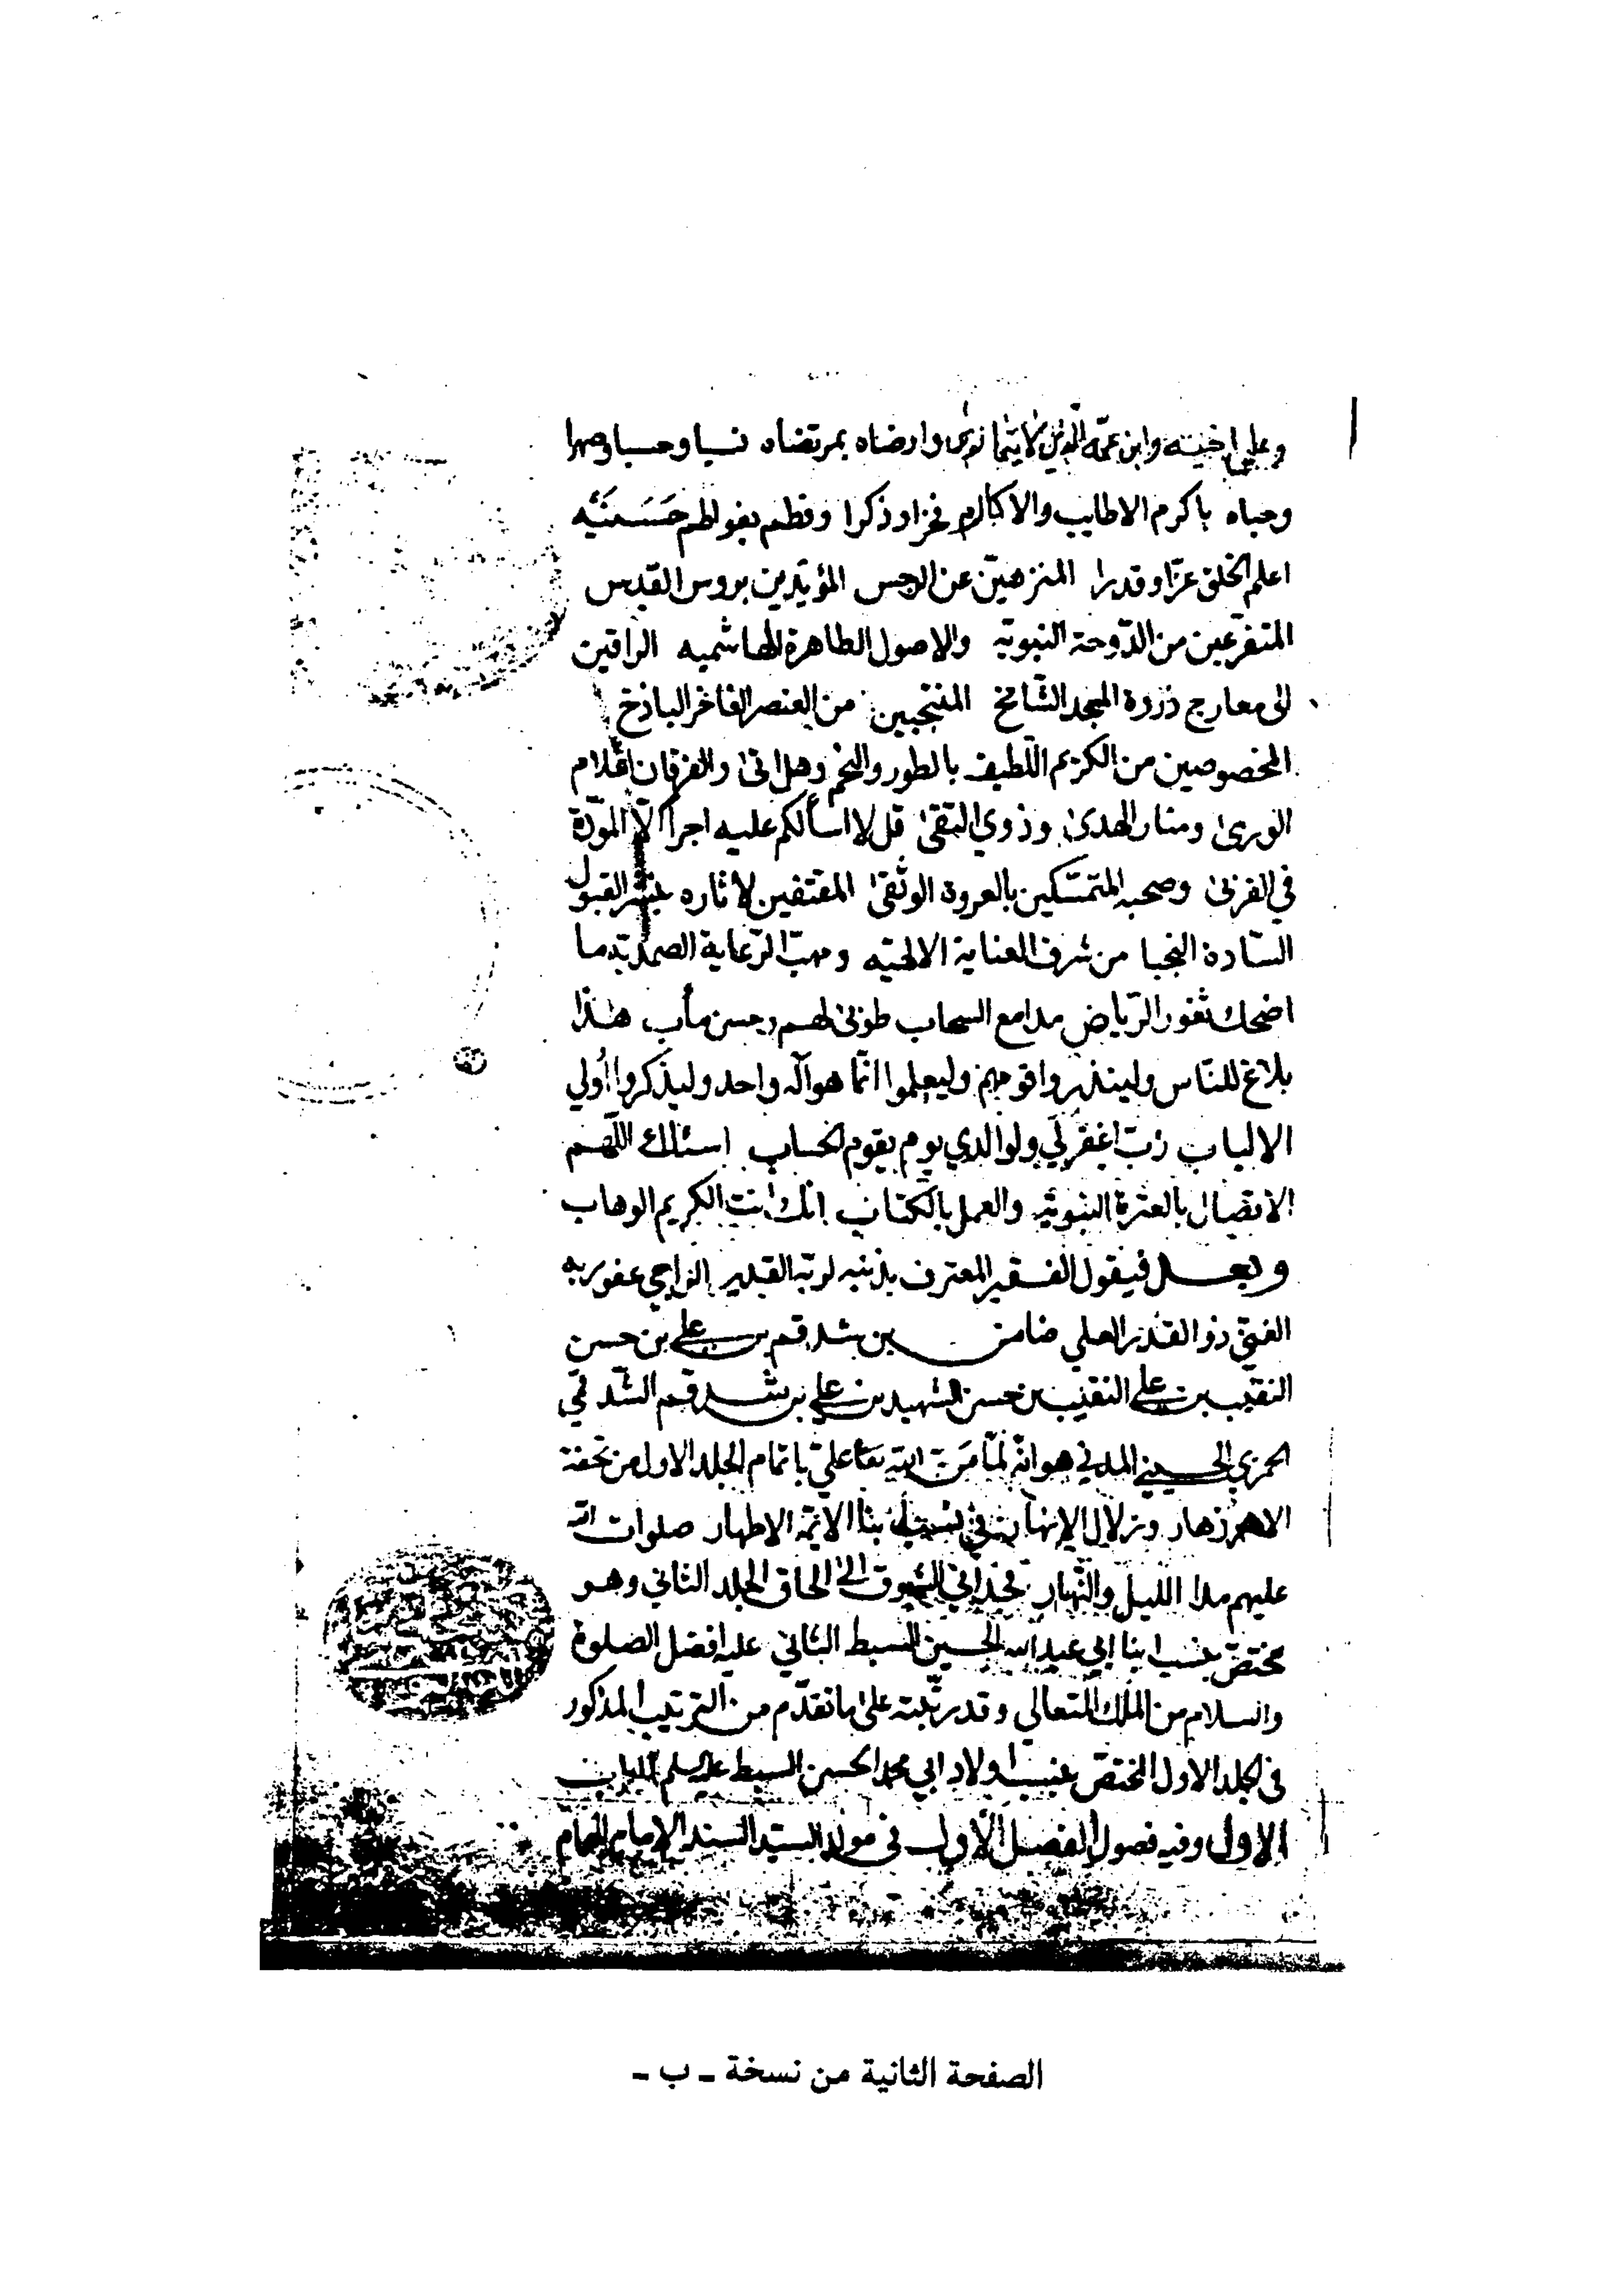 وعلى اخيه وابن عمه نوى وارضاه بمرتضاه نسبا وحسبا وصهرا
وحباه باكرم الاطايب والاكارم فخرا وذكرا وفطم بفواطم حسنيه
اعلم الخلق عزا وقدرا المنزهين عن الرجس المؤيدين بروس القدس
المتفرعين من الدوحة النبويه والاصول الطاهرة الهاشميه الراقين
الى معارج ذروة المجد الشامخ المنتجبين من العنصر الفاخر الباذخ
المخصوصين من الكريم اللطيف بالطور والنجم وهل اتى والفرقان اعلام
الورى ومنار الهدى وذوي التقى قل لا اسألكم عليه اجرا الا المودة
في القربى وصحبه المتمسكين بالعروة الوثقى المقتفين لاثاره القبول
السادة النجبا من شرف العناية الالهيه ومهب الرعاية الصمديه ما
اضحك ثغور الرياض مدامع السحاب طوبى لهم وحسن مأب هذا
بلاغ للناس ولينذروا قومهم وليعلموا انما هو آله واحد وليذكروا أولي
الالباب رب اغفر لي ولوالدي يوم يقوم الحساب اسئلك اللهم
الاتصال بالعترة النبويه والعمل بالكتاب انك انت الكريم الوهاب
وبعد فيقول الفقير المعترف بذنبه لربه القدير الراجي عفو ربه
الغني ذو القدر العلي ضامن بن شدقم بن علي بن حسن
النقيب بن علي النقيب بن حسن الشهيد بن علي بن شدقم الشدقمي
الحمزي الحسيني المدني هو انه لما من الله تعا علي باتمام المجلد الاول من تحفة
الازهار وزلال الانهار في نسب ابنا الائمه الاطهار صلوات الله
عليهم مدا الليل والنهار الشوق الى الحاق المجلد الثاني وهو
مختص بنسب ابنا ابي عبد الله الحسين السبط الثاني عليه افضل الصلوة
والسلام من الملك المتعالي وقد رتبته على ما تقدم من الترتيب المذكور
في المجلد الاول المختص بنسب اولاد ابي محمد الحسن السبط عليه السلم الباب
الاول وفيه فصول الفصل الأول في مولد السيد السند الامام الهمام
الصفحة الثانية من نسخة ـ ب ـ